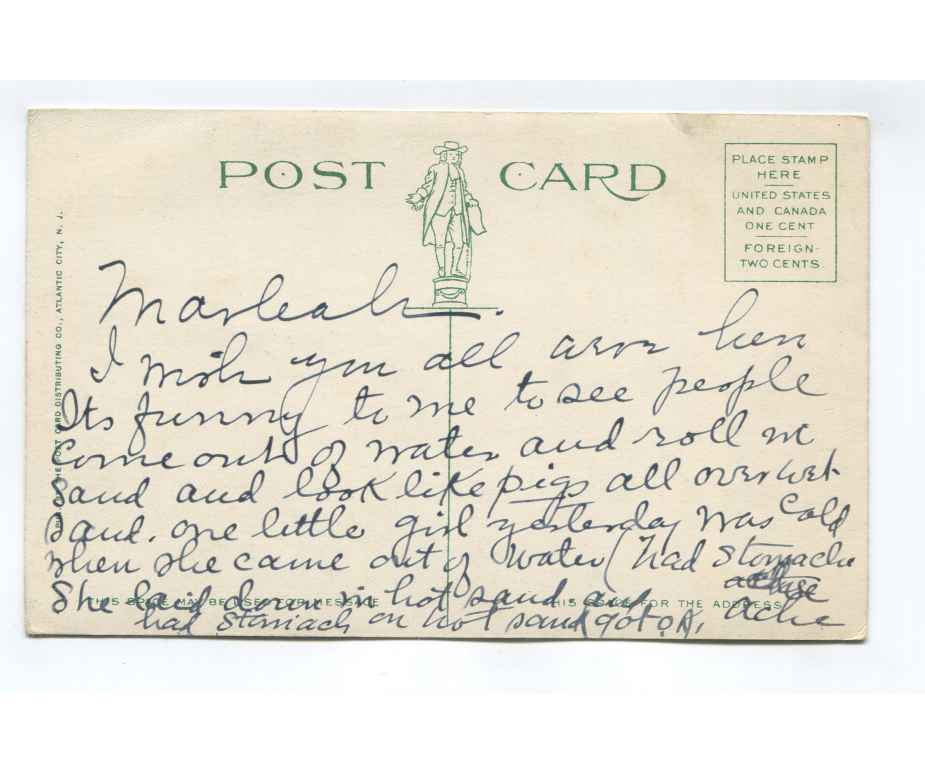 POST CARD
PLACE STAMP
HERE
UNITED STATES
AND CANADA
ONE CENT
FOREIGN-
TWO CENTS.
POST CARD DISTRIBUTING CO., ATLANTIC CITY, N. J.
Marleah.
I wish you all were here
Its funny to me to see people
Come out of water and roll in
Sand and look like pigs all over wet
Sand. One little girl yesterday was Cold
when she came out of water (had Stomache
Ache
She laid down in hot sand and
had Stomach on hot sand got O.K.
THIS SPACE MAY BE USED FOR MESSAGE
THIS SPACE FOR THE ADDRESS